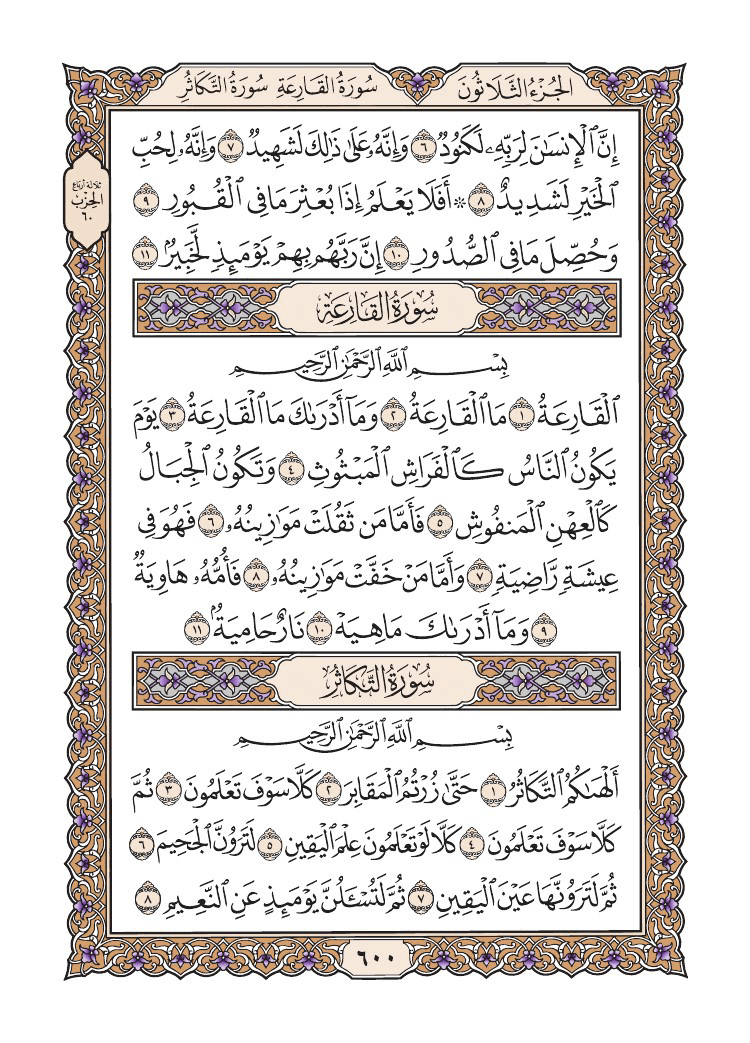 الجُزْءُ الثَّلَاثُونَ
سُورَةُ القَارِعَةِ سُورَةُ التَّكَاثُرِ
ثلاثة أرباع
الحِزْب
٦٠
إِنَّ ٱلْإِنسَٰنَ لِرَبِّهِۦ لَكَنُودٌ ٦ وَإِنَّهُۥ عَلَىٰ ذَٰلِكَ لَشَهِيدٌ ٧ وَإِنَّهُۥ لِحُبِّ
ٱلْخَيْرِ لَشَدِيدٌ ٨ ۞ أَفَلَا يَعْلَمُ إِذَا بُعْثِرَ مَا فِي ٱلْقُبُورِ ٩
وَحُصِّلَ مَا فِي ٱلصُّدُورِ ١٠ إِنَّ رَبَّهُم بِهِمْ يَوْمَئِذٍ لَّخَبِيرٌۢ ١١
سُورَةُ القَارِعَةِ
بِسْمِ ٱللَّهِ ٱلرَّحْمَٰنِ ٱلرَّحِيمِ
ٱلْقَارِعَةُ ١ مَا ٱلْقَارِعَةُ ٢ وَمَآ أَدْرَىٰكَ مَا ٱلْقَارِعَةُ ٣ يَوْمَ
يَكُونُ ٱلنَّاسُ كَٱلْفَرَاشِ ٱلْمَبْثُوثِ ٤ وَتَكُونُ ٱلْجِبَالُ
كَٱلْعِهْنِ ٱلْمَنفُوشِ ٥ فَأَمَّا مَن ثَقُلَتْ مَوَٰزِينُهُۥ ٦ فَهُوَ فِي
عِيشَةٍ رَّاضِيَةٍ ٧ وَأَمَّا مَنْ خَفَّتْ مَوَٰزِينُهُۥ ٨ فَأُمُّهُۥ هَاوِيَةٌ
٩ وَمَآ أَدْرَىٰكَ مَا هِيَهْ ١٠ نَارٌ حَامِيَةٌۢ ١١
سُورَةُ التَّكَاثُرِ
بِسْمِ ٱللَّهِ ٱلرَّحْمَٰنِ ٱلرَّحِيمِ
أَلْهَىٰكُمُ ٱلتَّكَاثُرُ ١ حَتَّىٰ زُرْتُمُ ٱلْمَقَابِرَ ٢ كَلَّا سَوْفَ تَعْلَمُونَ ٣ ثُمَّ
كَلَّا سَوْفَ تَعْلَمُونَ ٤ كَلَّا لَوْ تَعْلَمُونَ عِلْمَ ٱلْيَقِينِ ٥ لَتَرَوُنَّ ٱلْجَحِيمَ ٦
ثُمَّ لَتَرَوُنَّهَا عَيْنَ ٱلْيَقِينِ ٧ ثُمَّ لَتُسْـَٔلُنَّ يَوْمَئِذٍ عَنِ ٱلنَّعِيمِ ٨
٦٠٠